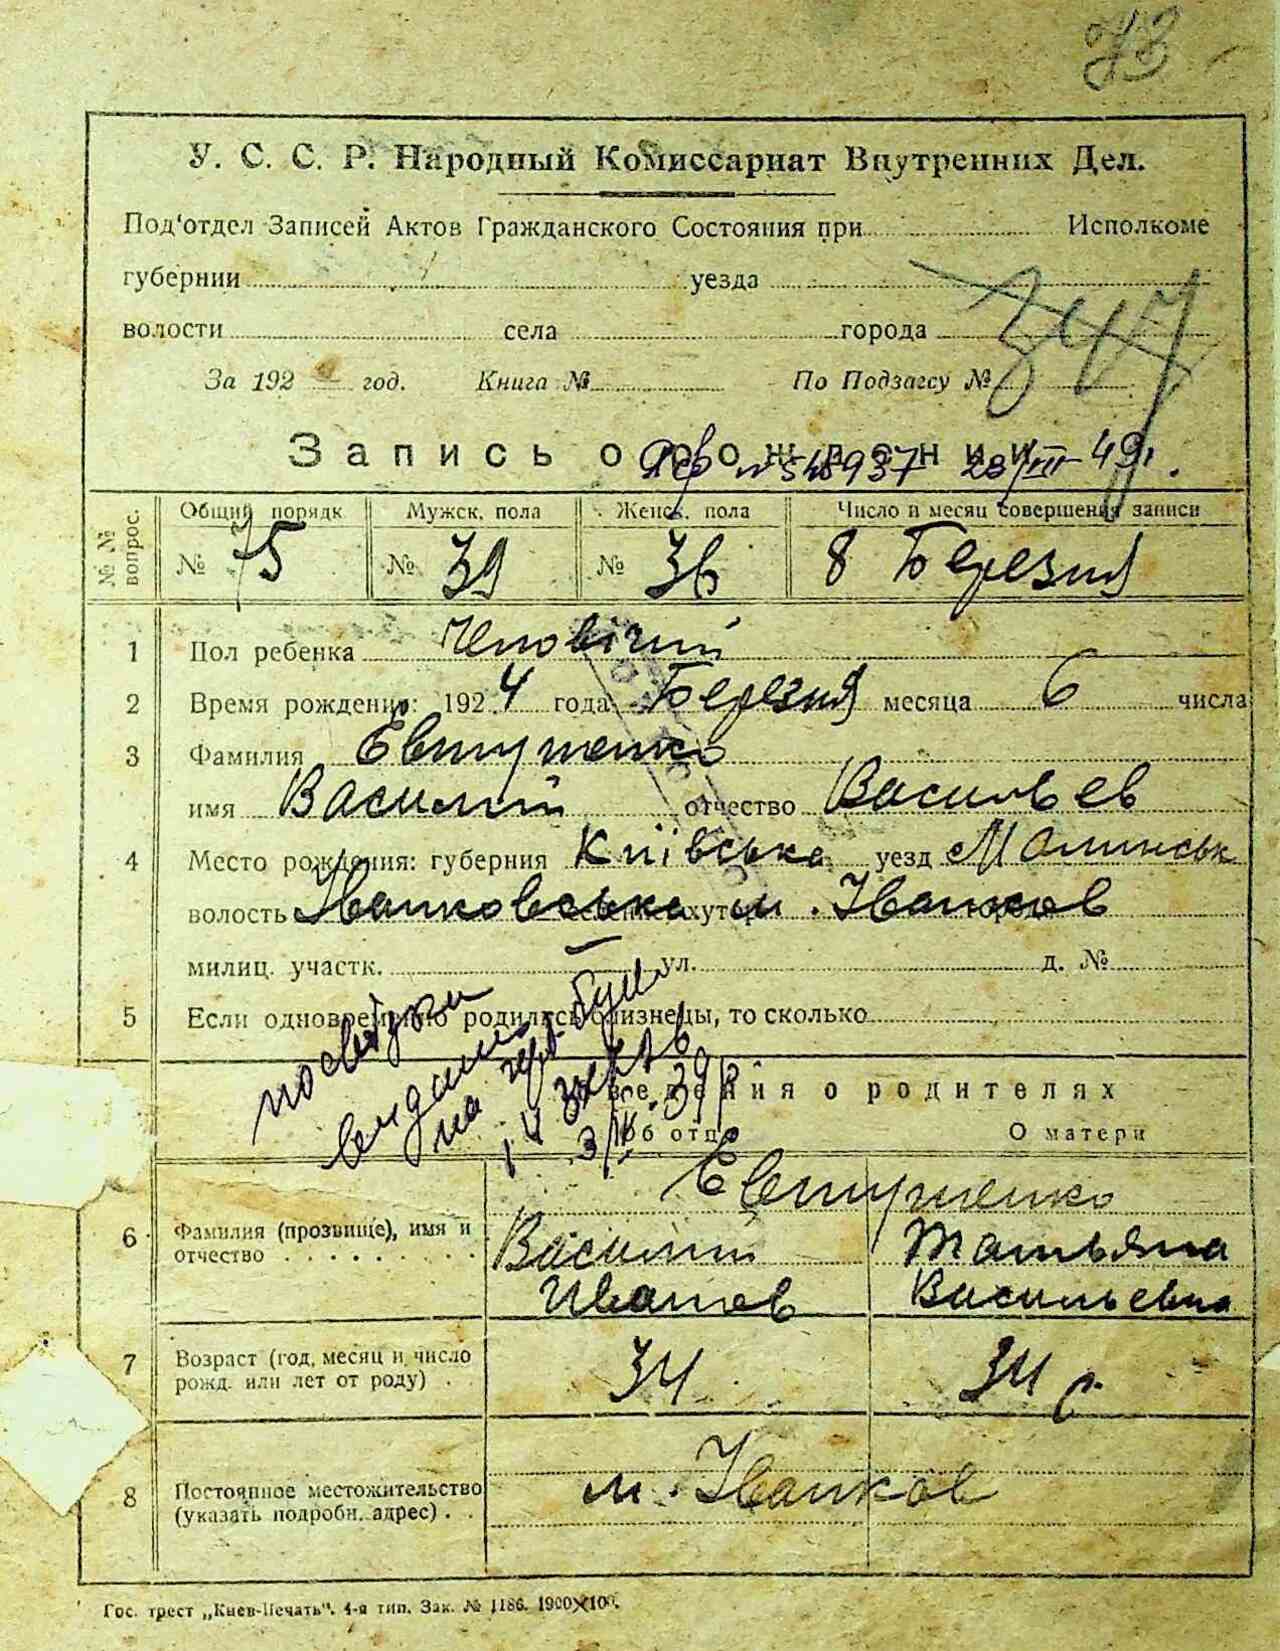 73
У. С. С. Р. Народный Комиссариат Внутренних Дел.
Под'отдел Записей Актов Гражданского Состояния при Исполкоме
губернии уезда
волости села города
347
За 192 год. Книга № По Подзагсу №
Запись о рождении
№ 548937 28/III-49.
№№ вопрос.
Общий порядк Мужск. пола Женск. пола Число и месяц совершения записи
№ 75 № 39 № 36 8 Березня
1 Пол ребенка Чоловічий
2 Время рождения: 1924 года Березня месяца 6 числа
3 Фамилия Евтушенко
имя Василий отчество Васильев
4 Место рождения: губерния Київська уезд Малинськ
волость Иванковська м. Иванков
милиц. участк. ул. д. №
5 Если одновременно родились близнецы, то сколько
Сведения о родителях
Об отце О матери
Евтушенко
6 Фамилия (прозвище), имя и отчество Василий Татьяна
Иванов Васильевна
7 Возраст (год, месяц и число рожд. или лет от роду) 34 34 р.
8 Постоянное местожительство (указать подробн. адрес) м. Иванков
Гос. трест „Киев-Печать". 4-я тип. Зак. № 1186. 1900×100.